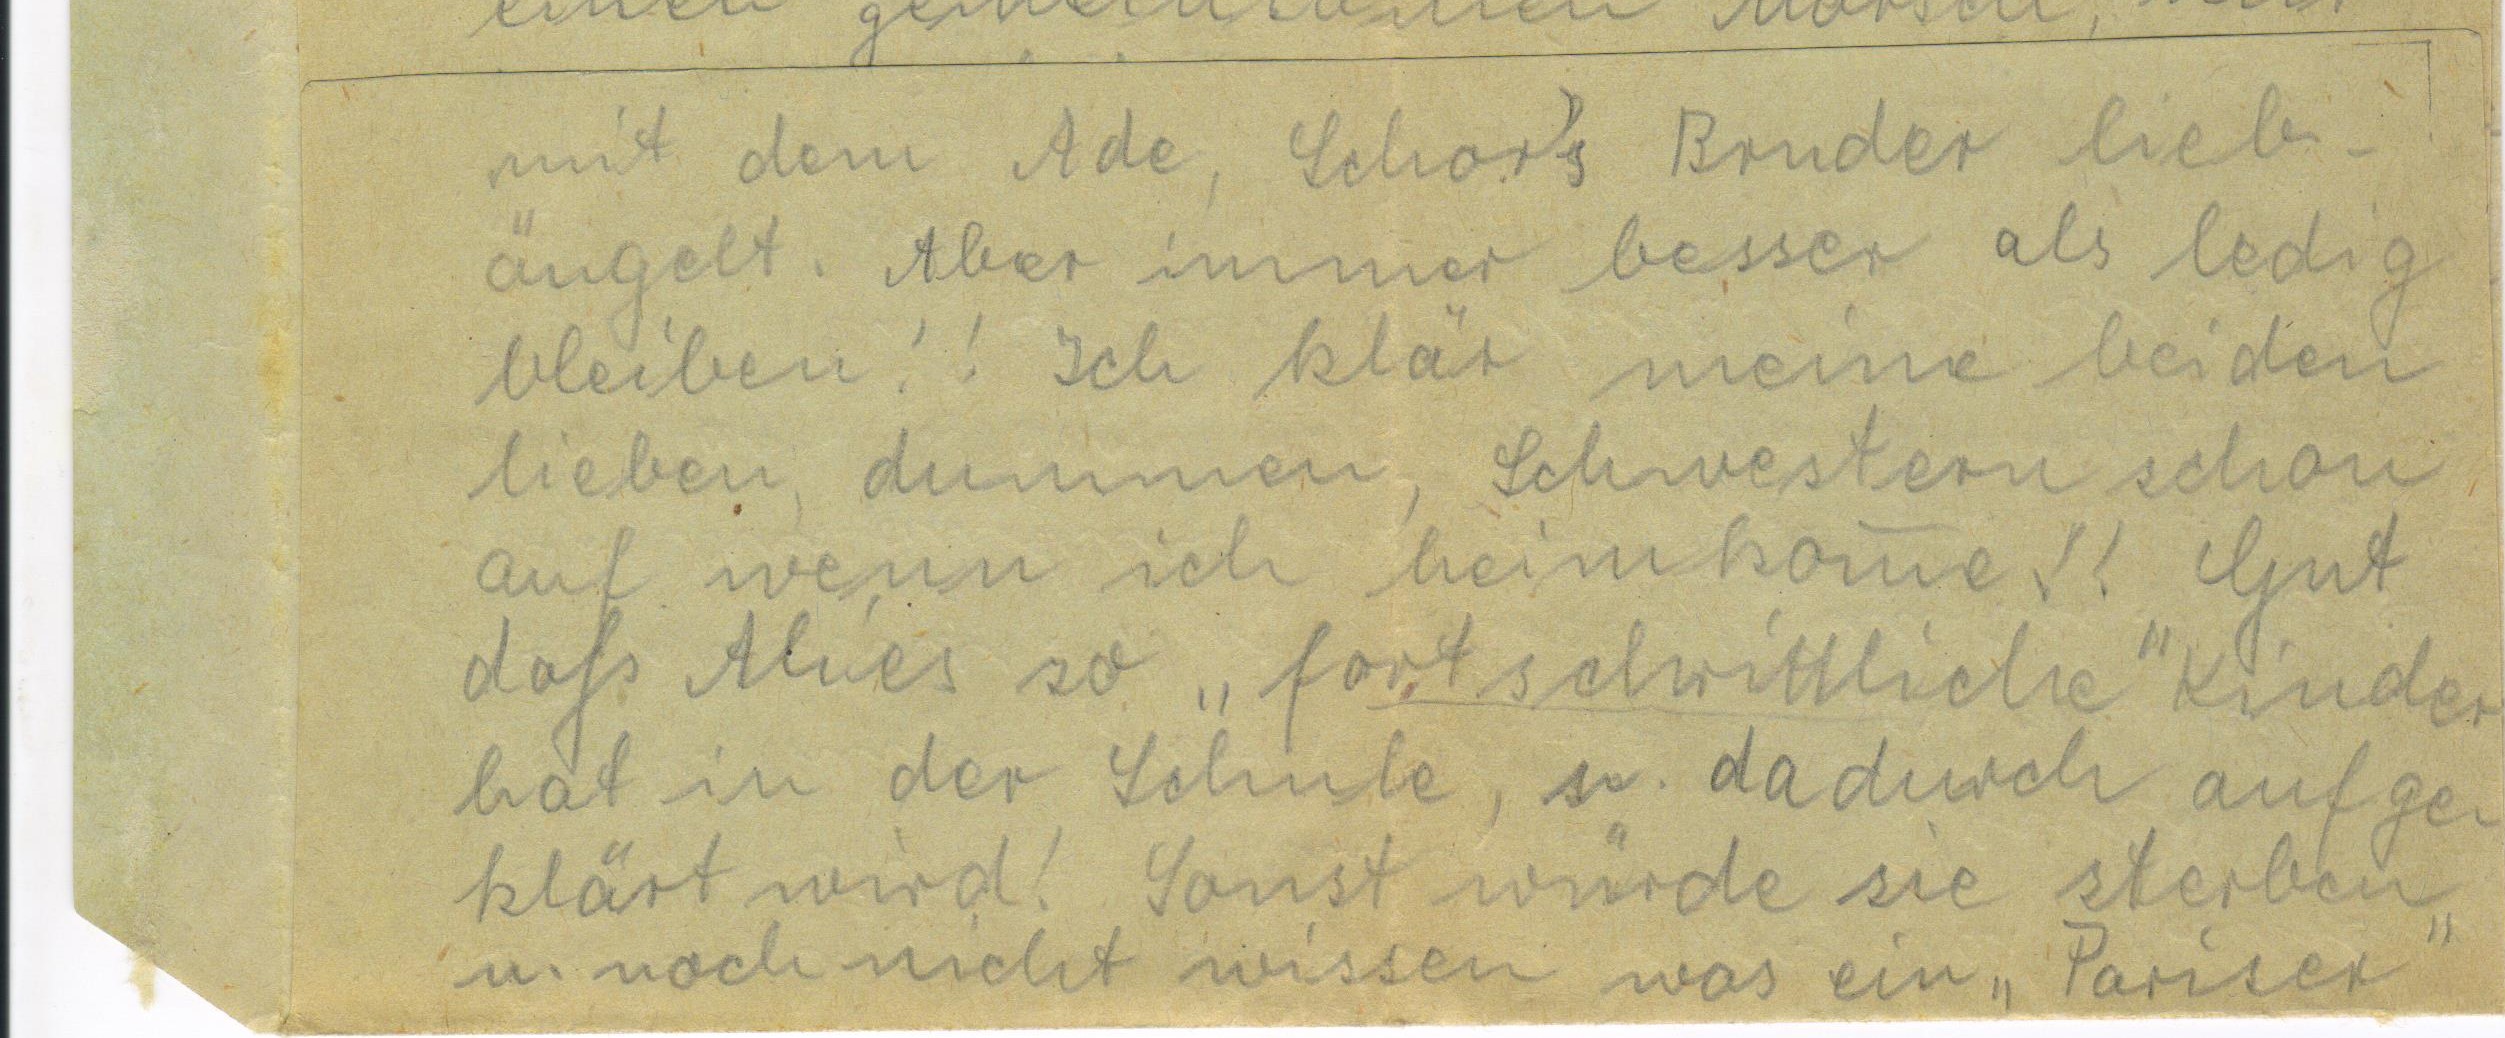 einen
mit dem Ade, Schor's Bruder lieb-
äugelt. Aber immer besser als ledig
bleiben!! Ich klär meine beiden
lieben, dummen, Schwestern schon
auf wenn ich heimkom̅e!! Gut
daß Alies so „fortschrittliche" Kinder
hat in der Schule, u. dadurch aufge-
klärt wird! Sonst würde sie sterben
u. noch nicht wissen was ein „Pariser"